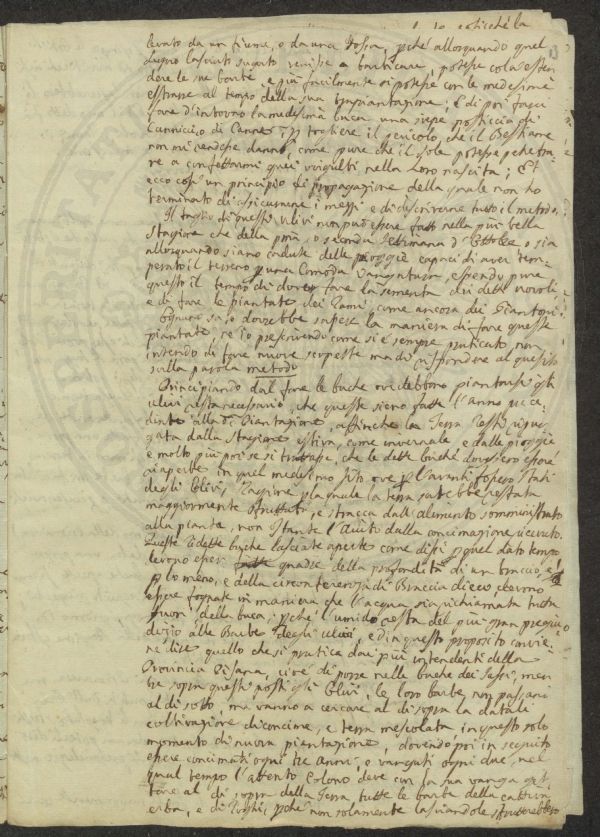 levato da un fiume, o da una fossa, pché allorquando quel
legno lasciati sugato venisse a barbicare, potesse colà esten-
dere le sue barbe, e più facilmente si potesse con le medesime
estrarre al tempo della sua trapiantazione; E di poi facci
fare d'intorno la medesima buca una siepe posticcia di
Cannicci, o di Canne, p togliere il pericolo, che il Bestiame
non mi rendesse danno, come pure che il Sole potesse penetra-
re a confettarmi quei virgulti nella loro nascita; Et
ecco così un principio di propagazione della quale non ho
terminato di assicurarne i mezzi e di descriverne tutto il metodo.
Il taglio di questi Ulivi non può essere fatto nella più bella
Stagione che della pma, o seconda Settimana d'Ottobre o sia
allorquando siano cadute delle pioggie capaci di aver tem-
perato il terreno p una Comoda Vangatura, essendo pure
questo il tempo di dover fare la sementa dei detti novoli
e di fare le piantate dei Rami, come ancora dei Piantoni
Ognuno sa, o dovrebbe sapere la maniera di fare queste
piantate, ed io prescrivendo come si è sempre praticato, non
intendo di fare nuove scoperte ma di rispondere al quesito
sulla parola metodo
Principiando dal fare le buche ove debbono piantarsi gli
ulivi resta necessario, che queste sieno fatte l'anno prece-
dente alla di Piantazione, affinche la Terra resti
gata dalla Stagione estiva, come invernale e dalle pioggie
e molto più poi se si trattasse, che le dette buche dovessero essere
riaperte in quel medesimo sito ove p l'avanti fossero stati
degli Olivi, Ragione p la quale la terra sarebbe restata
maggiormente sfruttata, e stracca dall'alimento somministrato
alla pianta, non ostante l'aiuto dalla concimazione ricevuto.
Queste dette buche lasciate aperte come dissi p quel dato tempo
devono esser quadre della profondità di un braccio, e
p lo meno, e della circonferenza di Braccia dieci, devono
essere fognate in maniera che l'acqua sia richiamata tutta
fuori della buca, pche l'umido resta del più gran pregiu-
dizio alle Barbe degli ulivi, ed in questo proposito convie-
ne dire quello che si pratica dai più intendenti della
Provincia Pisana, cioè di porre nelle buche dei sassi, men-
tre sopra questi posti gli Ulivi, le loro barbe non passano
al di sotto, ma vanno a cercare al di sopra la da tale
coltivazione di concime, e terra mescolata, in questo solo
momento di nuova piantazione, dovendo poi in seguito
essere concimati ogni tre anni, e vangati ogni due, nel
qual tempo l'attento Colono deve con la sua vanga get-
tare al di sopra della Terra tutte le barbe della cattiva
erba, e di Rughi, pche non solamente lasciandole sfrutterebbero